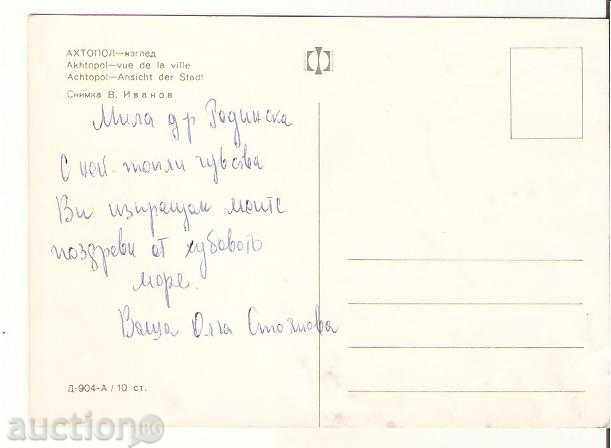 АХТОПОЛ—изглед
Akhtopol—vue de la ville
Achtopol—Ansicht der Stadt
Снимка В. Иванов
Мила д-р Родинска
С най-топли чувства
Ви изпращам моите
поздрави от хубавото
море.
Ваша Олга Стоянова
Д-904-А / 10 ст.
auction BG